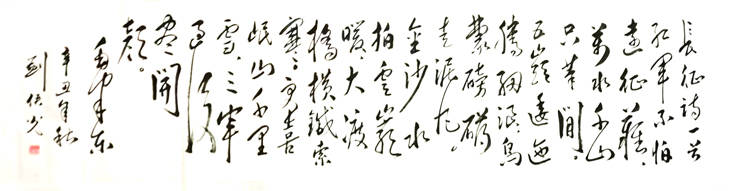 長征詩一首
紅軍不怕
遠征難，
萬水千山
只等閒。
五嶺逶迤
騰細浪，烏
蒙磅礴
走泥丸。
金沙水
拍雲崖
暖，大渡
橋橫鐵索
寒。更喜
岷山千里
雪，三軍
過後
盡開
顏。
毛澤東
辛丑年秋
劉